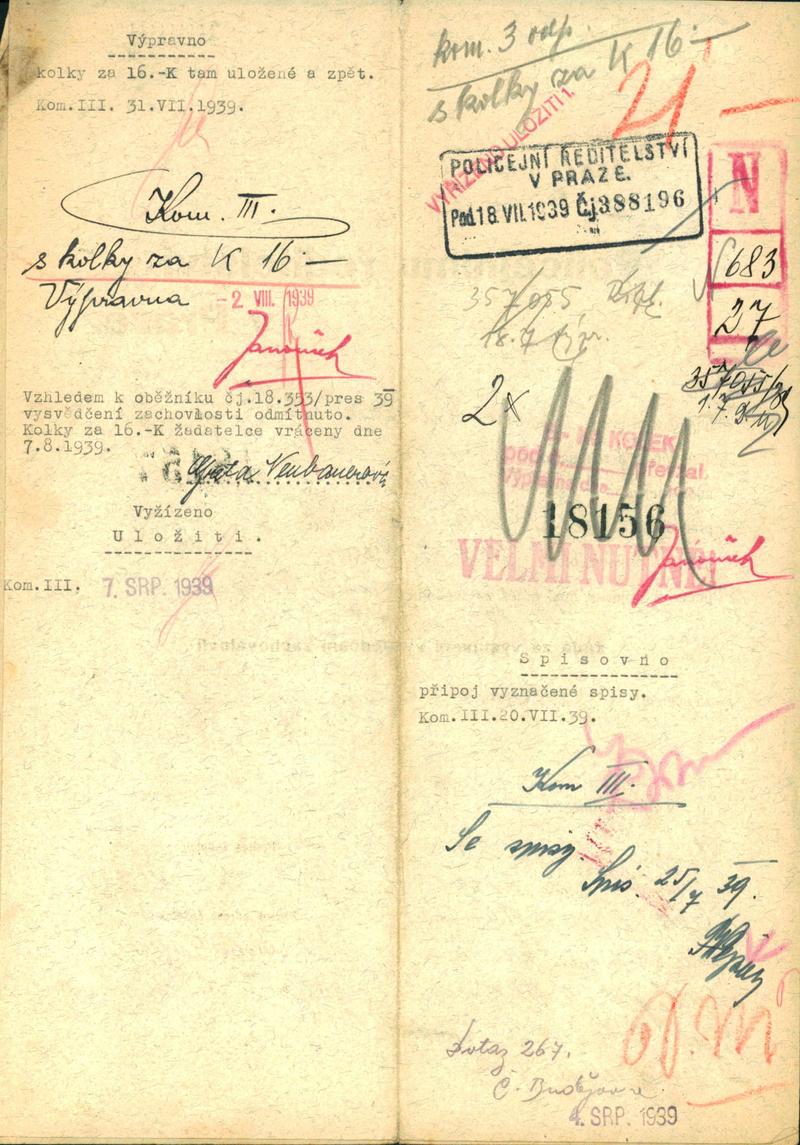 Výpravno
kolky za 16.-K tam uložené a zpět.
Kom.III. 31.VII.1939.
Kom. III.
s kolky za K 16·—
Výpravna
-2. VIII. 1939
Janoušek
Vzhledem k oběžníku čj.18.353/pres 39
vysvědčení zachovlosti odmítnuto.
Kolky za 16.-K žadatelce vráceny dne
7.8.1939.
Greta Neubauerová
Vyžízeno
Uložiti.
Kom.III. 7. SRP. 1939
kom. 3 odp.
s kolky za K 16·—
21 —
VYŘÍZENO ULOŽITI 1.
POLICEJNÍ ŘEDITELSTVÍ
V PRAZE.
Pod. 18. VII. 1939 Čj 388196
N
683
27
357055
18.7
357055/
1.7.
2x
KOLEK
18156
VELMI NUTNÉ!
Janoušek
Spisovno
připoj vyznačené spisy.
Kom.III.20.VII.39.
Kom III.
Se spisy
Spis. 25/7 39.
Dotaz 267.
Č. Budějovice
4. SRP. 1939